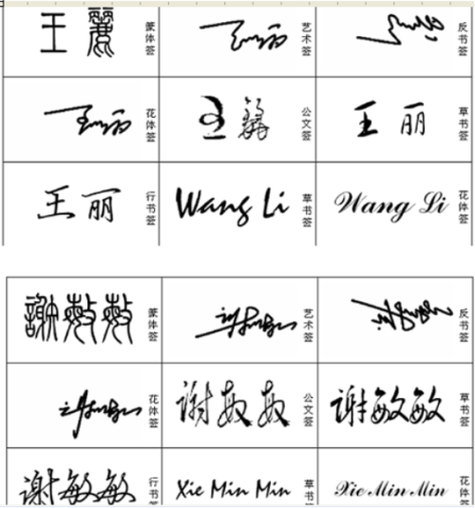 王麗 篆体签 王丽 艺术签 王丽 反书签
王丽 花体签 王麗 公文签 王丽 草书签
王丽 行书签 Wang Li 草书签 Wang Li 花体签
謝敏敏 篆体签 谢敏敏 艺术签 谢敏敏 反书签
谢敏敏 花体签 谢敏敏 公文签 谢敏敏 草书签
谢敏敏 行书签 Xie Min Min 草书 Xie Min Min 花体